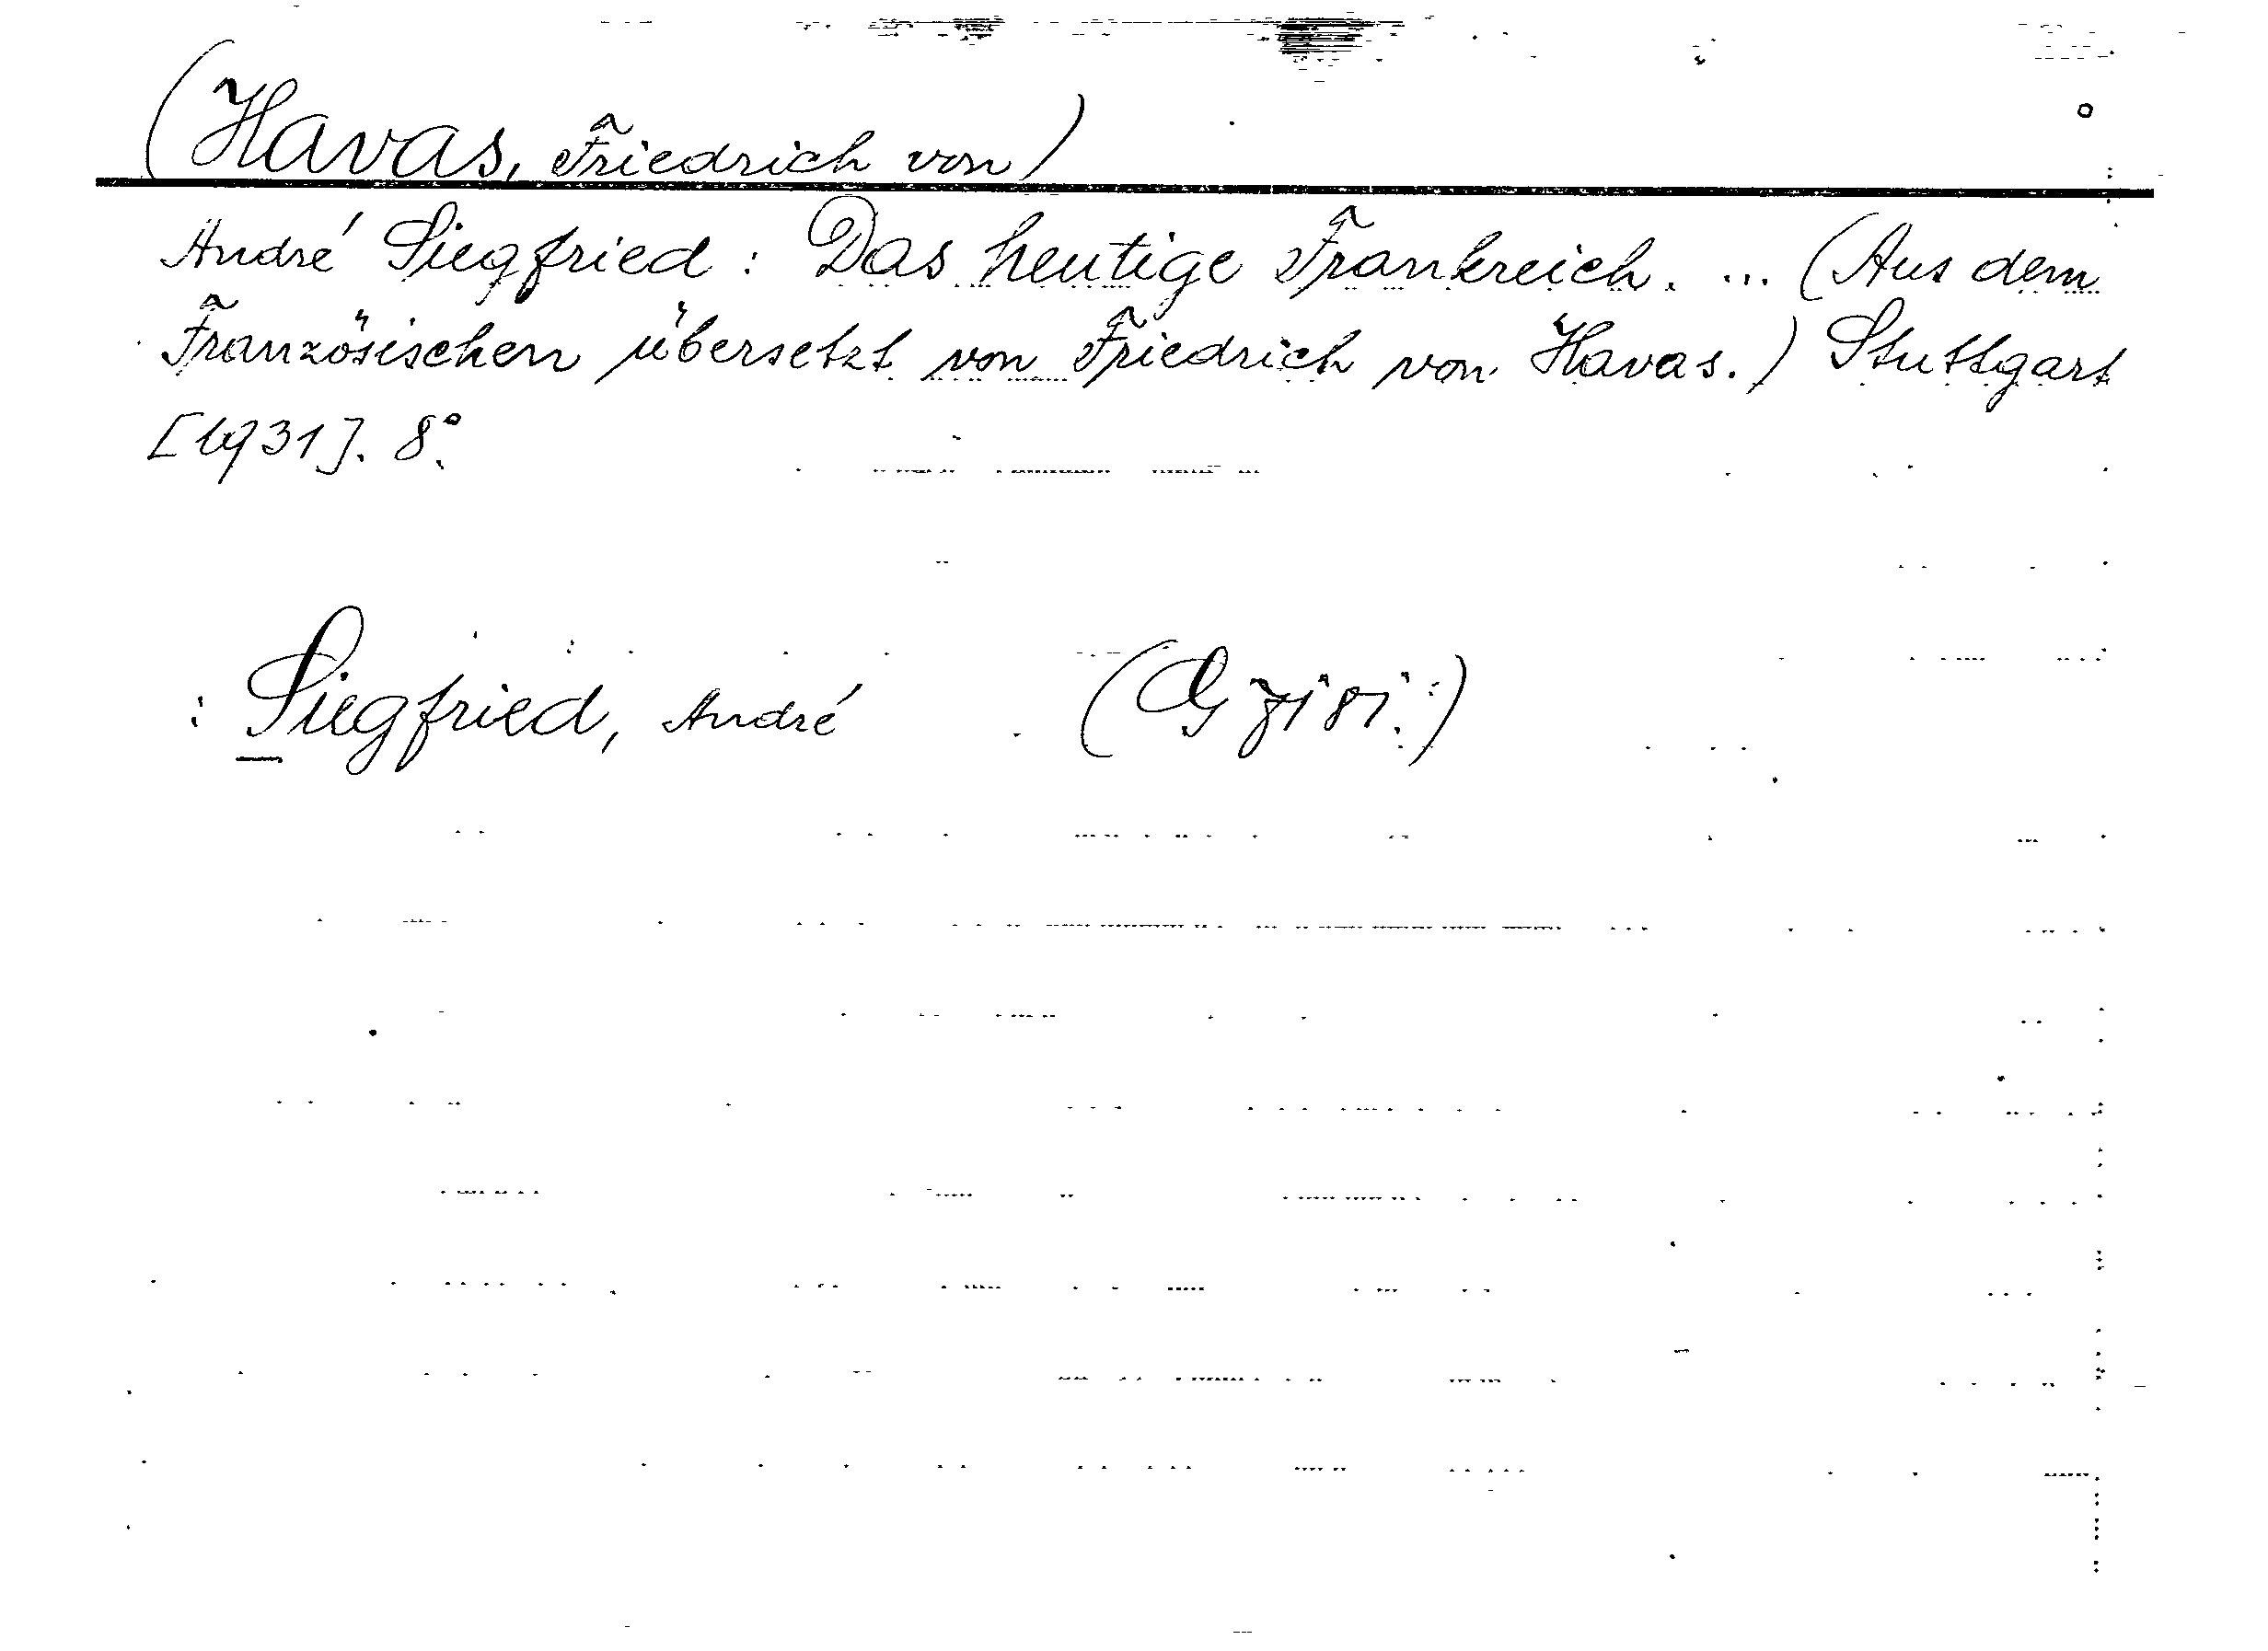 (Havas, Friedrich von)
André Siegfried: Das heutige Frankreich. ... (Aus dem
Französischen übersetzt von Friedrich von Havas.) Stuttgart
[1931]. 8°.
: Siegfried, André